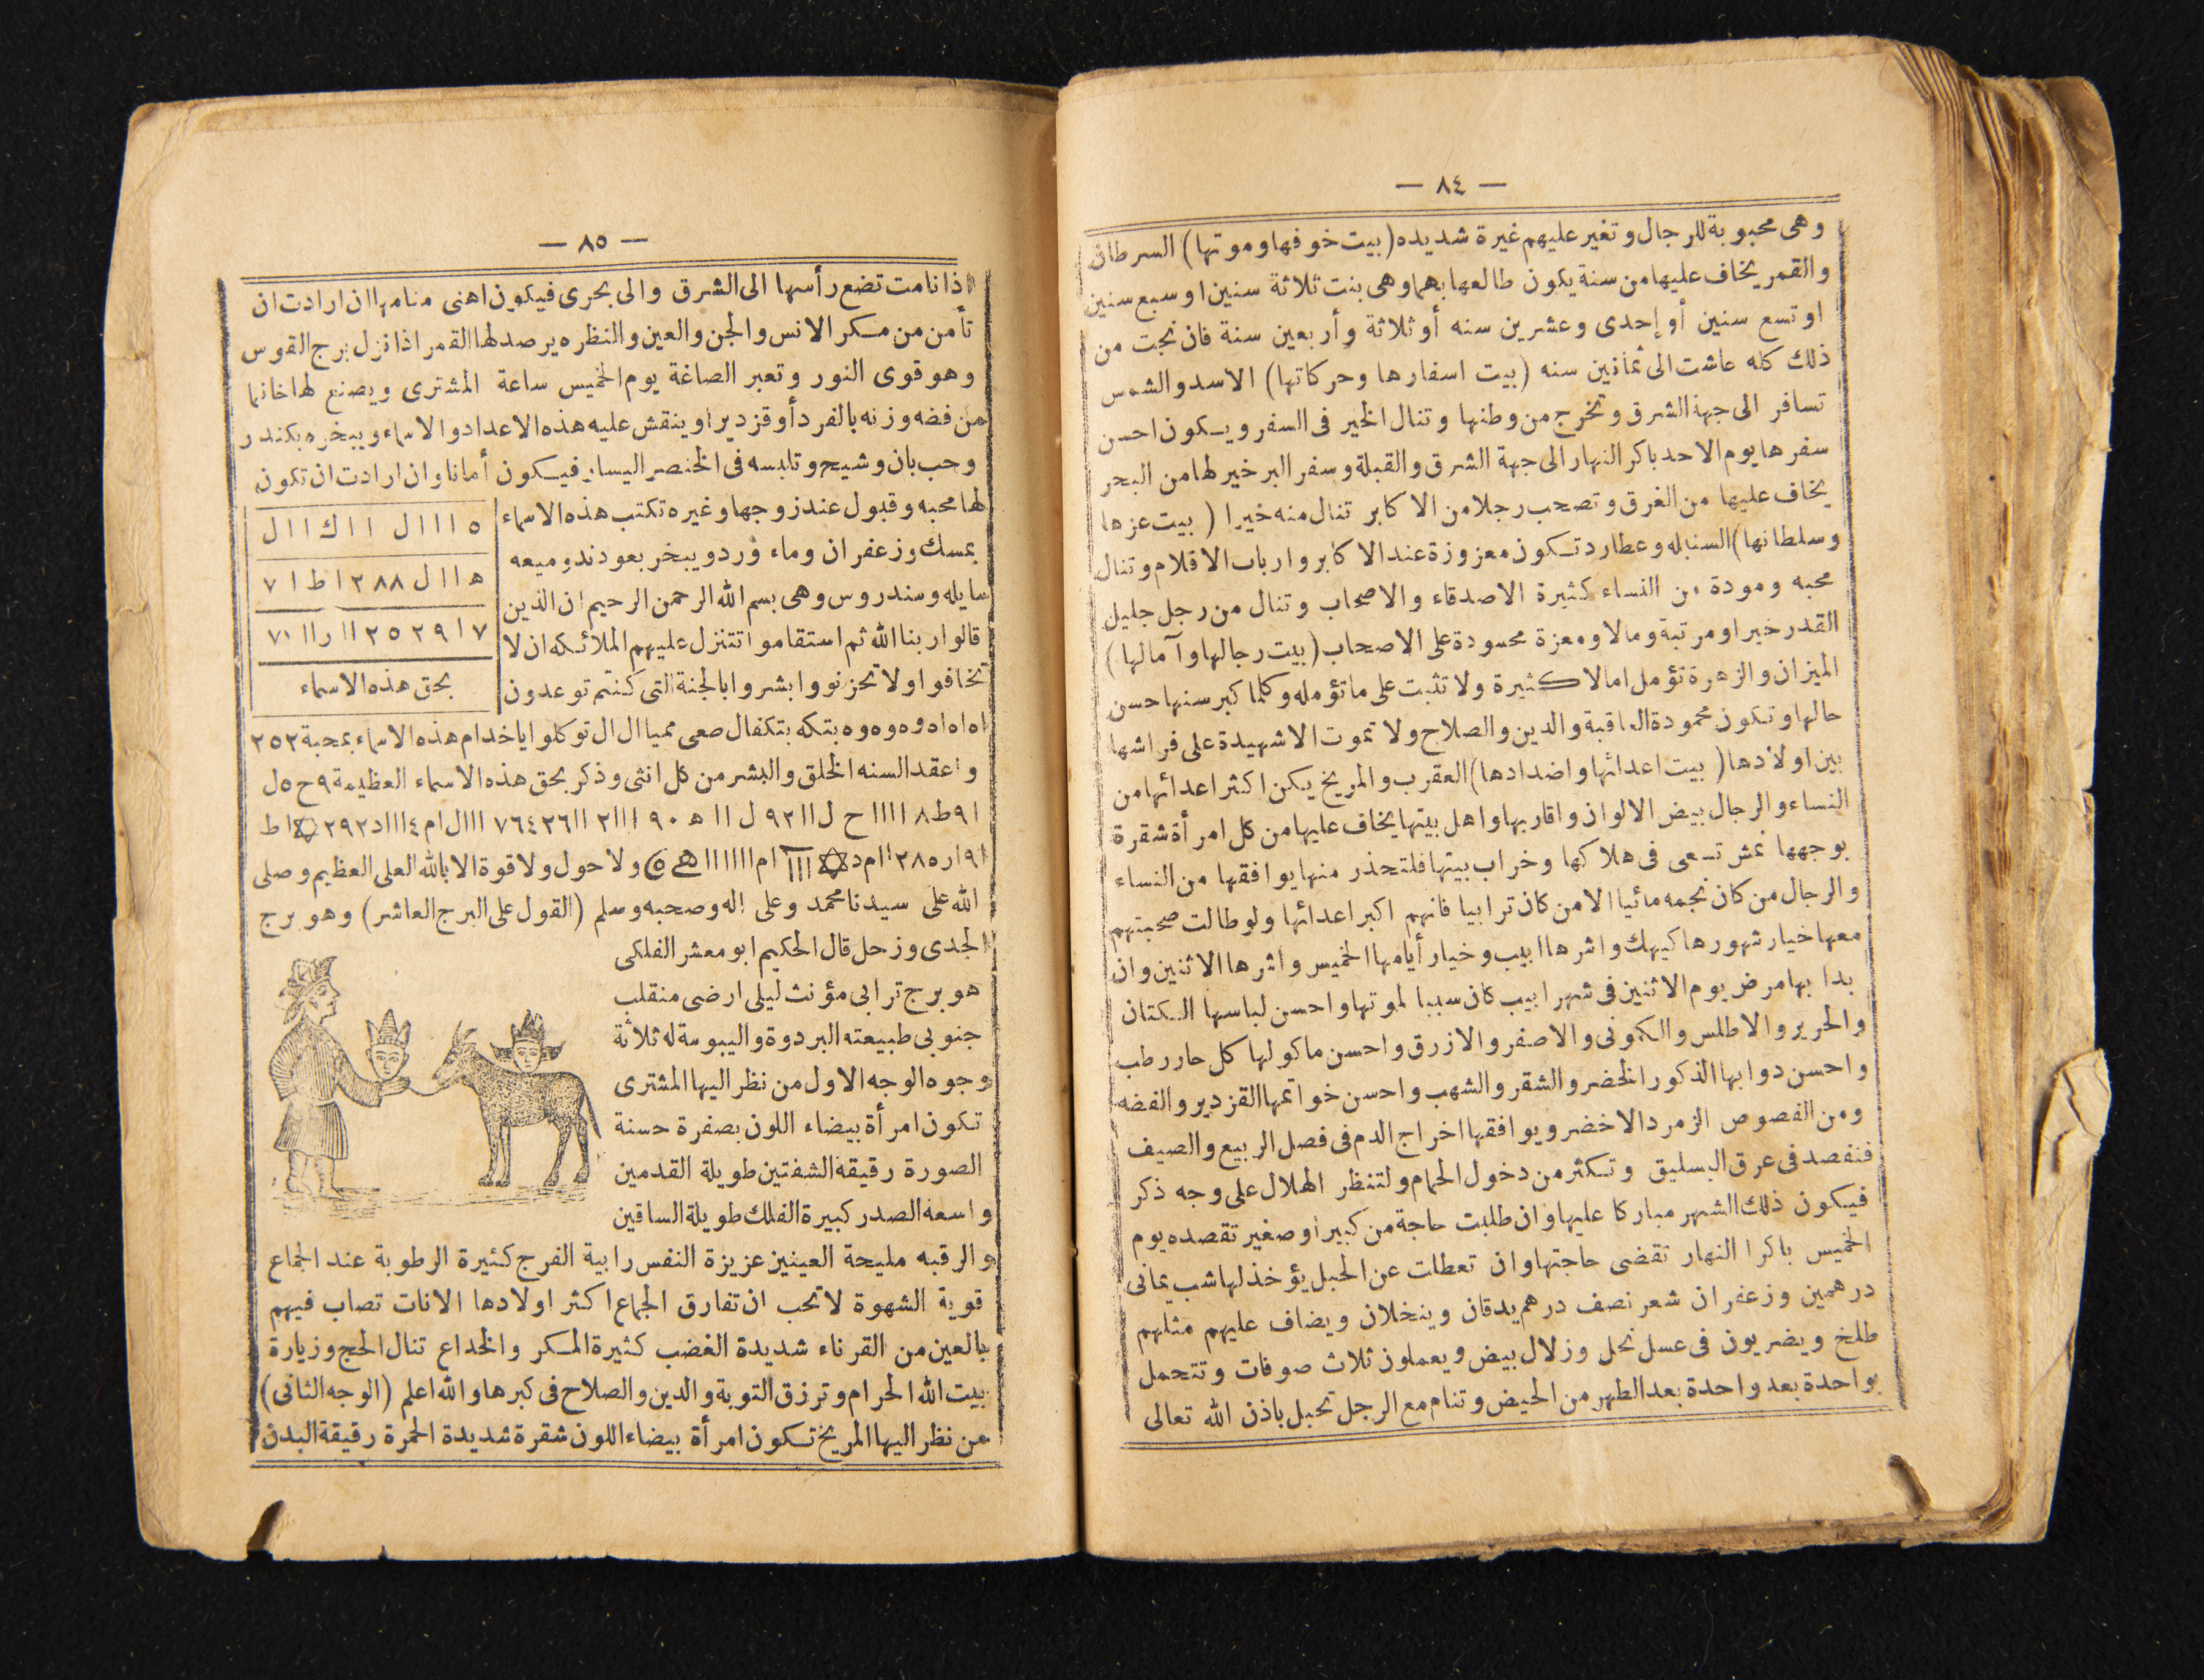 — ٨٤ —
وهى محبوبة للرجال وتغير عليهم غيرة شديده (بيت خوفها وموتها) السرطان
والقمر يخاف عليها من سنة يكون طالعها بهما وهى بنت ثلاثة سنين او سبع سنين
او تسع سنين أو إحدى وعشرين سنه أو ثلاثة وأربعين سنة فان نجت من
ذلك كله عاشت الى ثمانين سنه (بيت اسفارها وحركاتها) الاسد والشمس
تسافر الى جهة الشرق وتخرج من وطنها وتنال الخير فى السفر ويكون احسن
سفرها يوم الاحد باكر النهار الى جهة الشرق والقبلة وسفر البر خير لها من البحر
يخاف عليها من الغرق وتصحب رجلا من الاكابر تنال منه خيرا ( بيت عزها
وسلطانها) السنبله وعطارد تكون معزوزة عند الاكابر وارباب الاقلام وتنال
محبه ومودة من النساء كثيرة الاصدقاء والاصحاب وتنال من رجل جليل
القدر خيرا ومرتبة ومالا ومعزة محسودة على الاصحاب (بيت رجالها وآمالها)
الميزان والزهرة تؤمل امالا كثيرة ولا تثبت على ما تؤمله وكلما كبر سنها حسن
حالها وتكون محمودة العاقبة والدين والصلاح ولا تموت الا شهيدة على فراشها
بين اولادها ( بيت اعدائها واضدادها) العقرب والمريخ يكن اكثر اعدائها من
النساء والرجال بيض الالوان واقاربها واهل بيتها يخاف عليها من كل امرأة شقرة
بوجهها نمش تسعى فى هلاكها وخراب بيتها فلتحذر منها يوافقها من النساء
والرجال من كان نجمه مائيا الا من كان ترابيا فانهم اكبر اعدائها ولو طالت صحبتهم
معها خيار شهورها كيهك واشرها ابيب وخيار أيامها الخميس واشرها الاثنين وان
بدا بها مرض يوم الاثنين فى شهر ابيب كان سببا لموتها واحسن لباسها الكتان
والحرير والاطلس والكمونى والاصفر والازرق واحسن ماكولها كل حار رطب
واحسن دوابها الذكور الخضر والشقر والشهب واحسن خواتمها القزدير والفضه
ومن الفصوص الزمرد الاخضر ويوافقها اخراج الدم فى فصل الربيع والصيف
فتفصد فى عرق البسليق وتكثر من دخول الحمام ولتنظر الهلال على وجه ذكر
فيكون ذلك الشهر مباركا عليها وان طلبت حاجة من كبير او صغير تقصده يوم
الخميس باكرا النهار تقضى حاجتها وان تعطلت عن الحبل يؤخذ لها شب يمانى
درهمين وزعفران شعر نصف درهم يدقان وينخلان ويضاف عليهم مثلهم
طلخ ويضربون فى عسل نحل وزلال بيض ويعملون ثلاث صوفات وتتحمل
بواحدة بعد واحدة بعد الطهر من الحيض وتنام مع الرجل تحبل باذن الله تعالى
— ٨٥ —
اذا نامت تضع رأسها الى الشرق والى بحرى فيكون اهنى منامها ان ارادت ان
تأمن من مكر الانس والجن والعين والنظره يرصد لها القمر اذا نزل برج القوس
وهو قوى النور وتعبر الصاغة يوم الخميس ساعة المشترى ويصنع لها خاتما
من فضه وزنه بالفرد أو قزديرا وينقش عليه هذه الاعداد والاسماء ويبخره بكندر
وحب بان وشيح وتلبسه فى الخنصر اليسار فيكون أمانا وان ارادت ان تكون
لها محبه وقبول عند زوجها وغيره تكتب هذه الاسماء
بمسك وزعفران وماء ورد ويبخر بعود ند وميعه
سايله وسندروس وهى بسم الله الرحمن الرحيم ان الذين
قالوا ربنا الله ثم استقاموا تتنزل عليهم الملائكه ان لا
تخافوا ولا تحزنوا وابشروا بالجنة التى كنتم توعدون
٥ ا ا ا ل ا ا ك ا ا ل
ه ا ا ل ٨٨ ٢ ا ط ا ٧
٧ ا ٩ ٢ ٥ ٢ اا ر اا ٧١
بحق هذه الاسماء
اه اه اه وه وه وه بتكه بتكفال صعى مميا ال ال توكلوا يا خدام هذه الاسماء بمحبة ٢٥٢
واعقد السنه الخلق والبشر من كل انثى وذكر بحق هذه الاسماء العظيمة ٩ ح ٥ ل
ا ٩ ط ٨ ا ا ا ا ح ل ا ا ٩٢ ل ا ا ه ٩٠ ا ا ا ٢ ا ا ٧٦٤٢٦ ا ا ا ل ا م ٤ ا ا ا د ٢٩٢ ✡ ا ط
ا ٩ ا ر ٢٨٥ ا ا م د ✡ ااا ام اااااا ھ ولا حول ولا قوة الا بالله العلى العظيم وصلى
الله على سيدنا محمد وعلى اله وصحبه وسلم (القول على البرج العاشر) وهو برج
الجدى وزحل قال الحكيم ابو معشر الفلكى
هو برج ترابى مؤنث ليلى ارضى منقلب
جنوبى طبيعته البردوة واليبوسة له ثلاثة
وجوه الوجه الاول من نظر اليها المشترى
تكون امرأة بيضاء اللون بصفرة حسنة
الصورة رقيقة الشفتين طويلة القدمين
واسعة الصدر كبيرة الفلك طويلة الساقين
والرقبه مليحة العينين عزيزة النفس رابية الفرج كثيرة الرطوبة عند الجماع
قوية الشهوة لا تحب ان تفارق الجماع اكثر اولادها الانات تصاب فيهم
بالعين من القرناء شديدة الغضب كثيرة المكر والخداع تنال الحج وزيارة
بيت الله الحرام وترزق التوبة والدين والصلاح فى كبرها والله اعلم (الوجه الثانى)
من نظر اليها المريخ تكون امرأة بيضاء اللون شقرة شديدة الحمرة رقيقة البدن